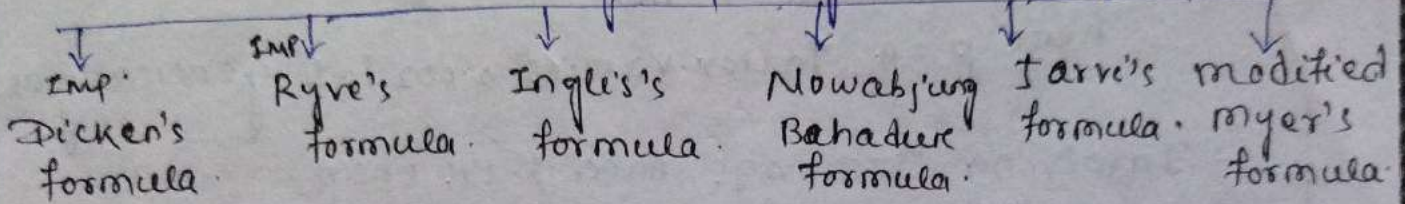 Imp.
Dicken's
formula.
IMP
Ryve's
formula.
Inglis's
formula.
Nowabjung
Bahadure
formula.
Jarve's
formula.
modified
myer's
formula.